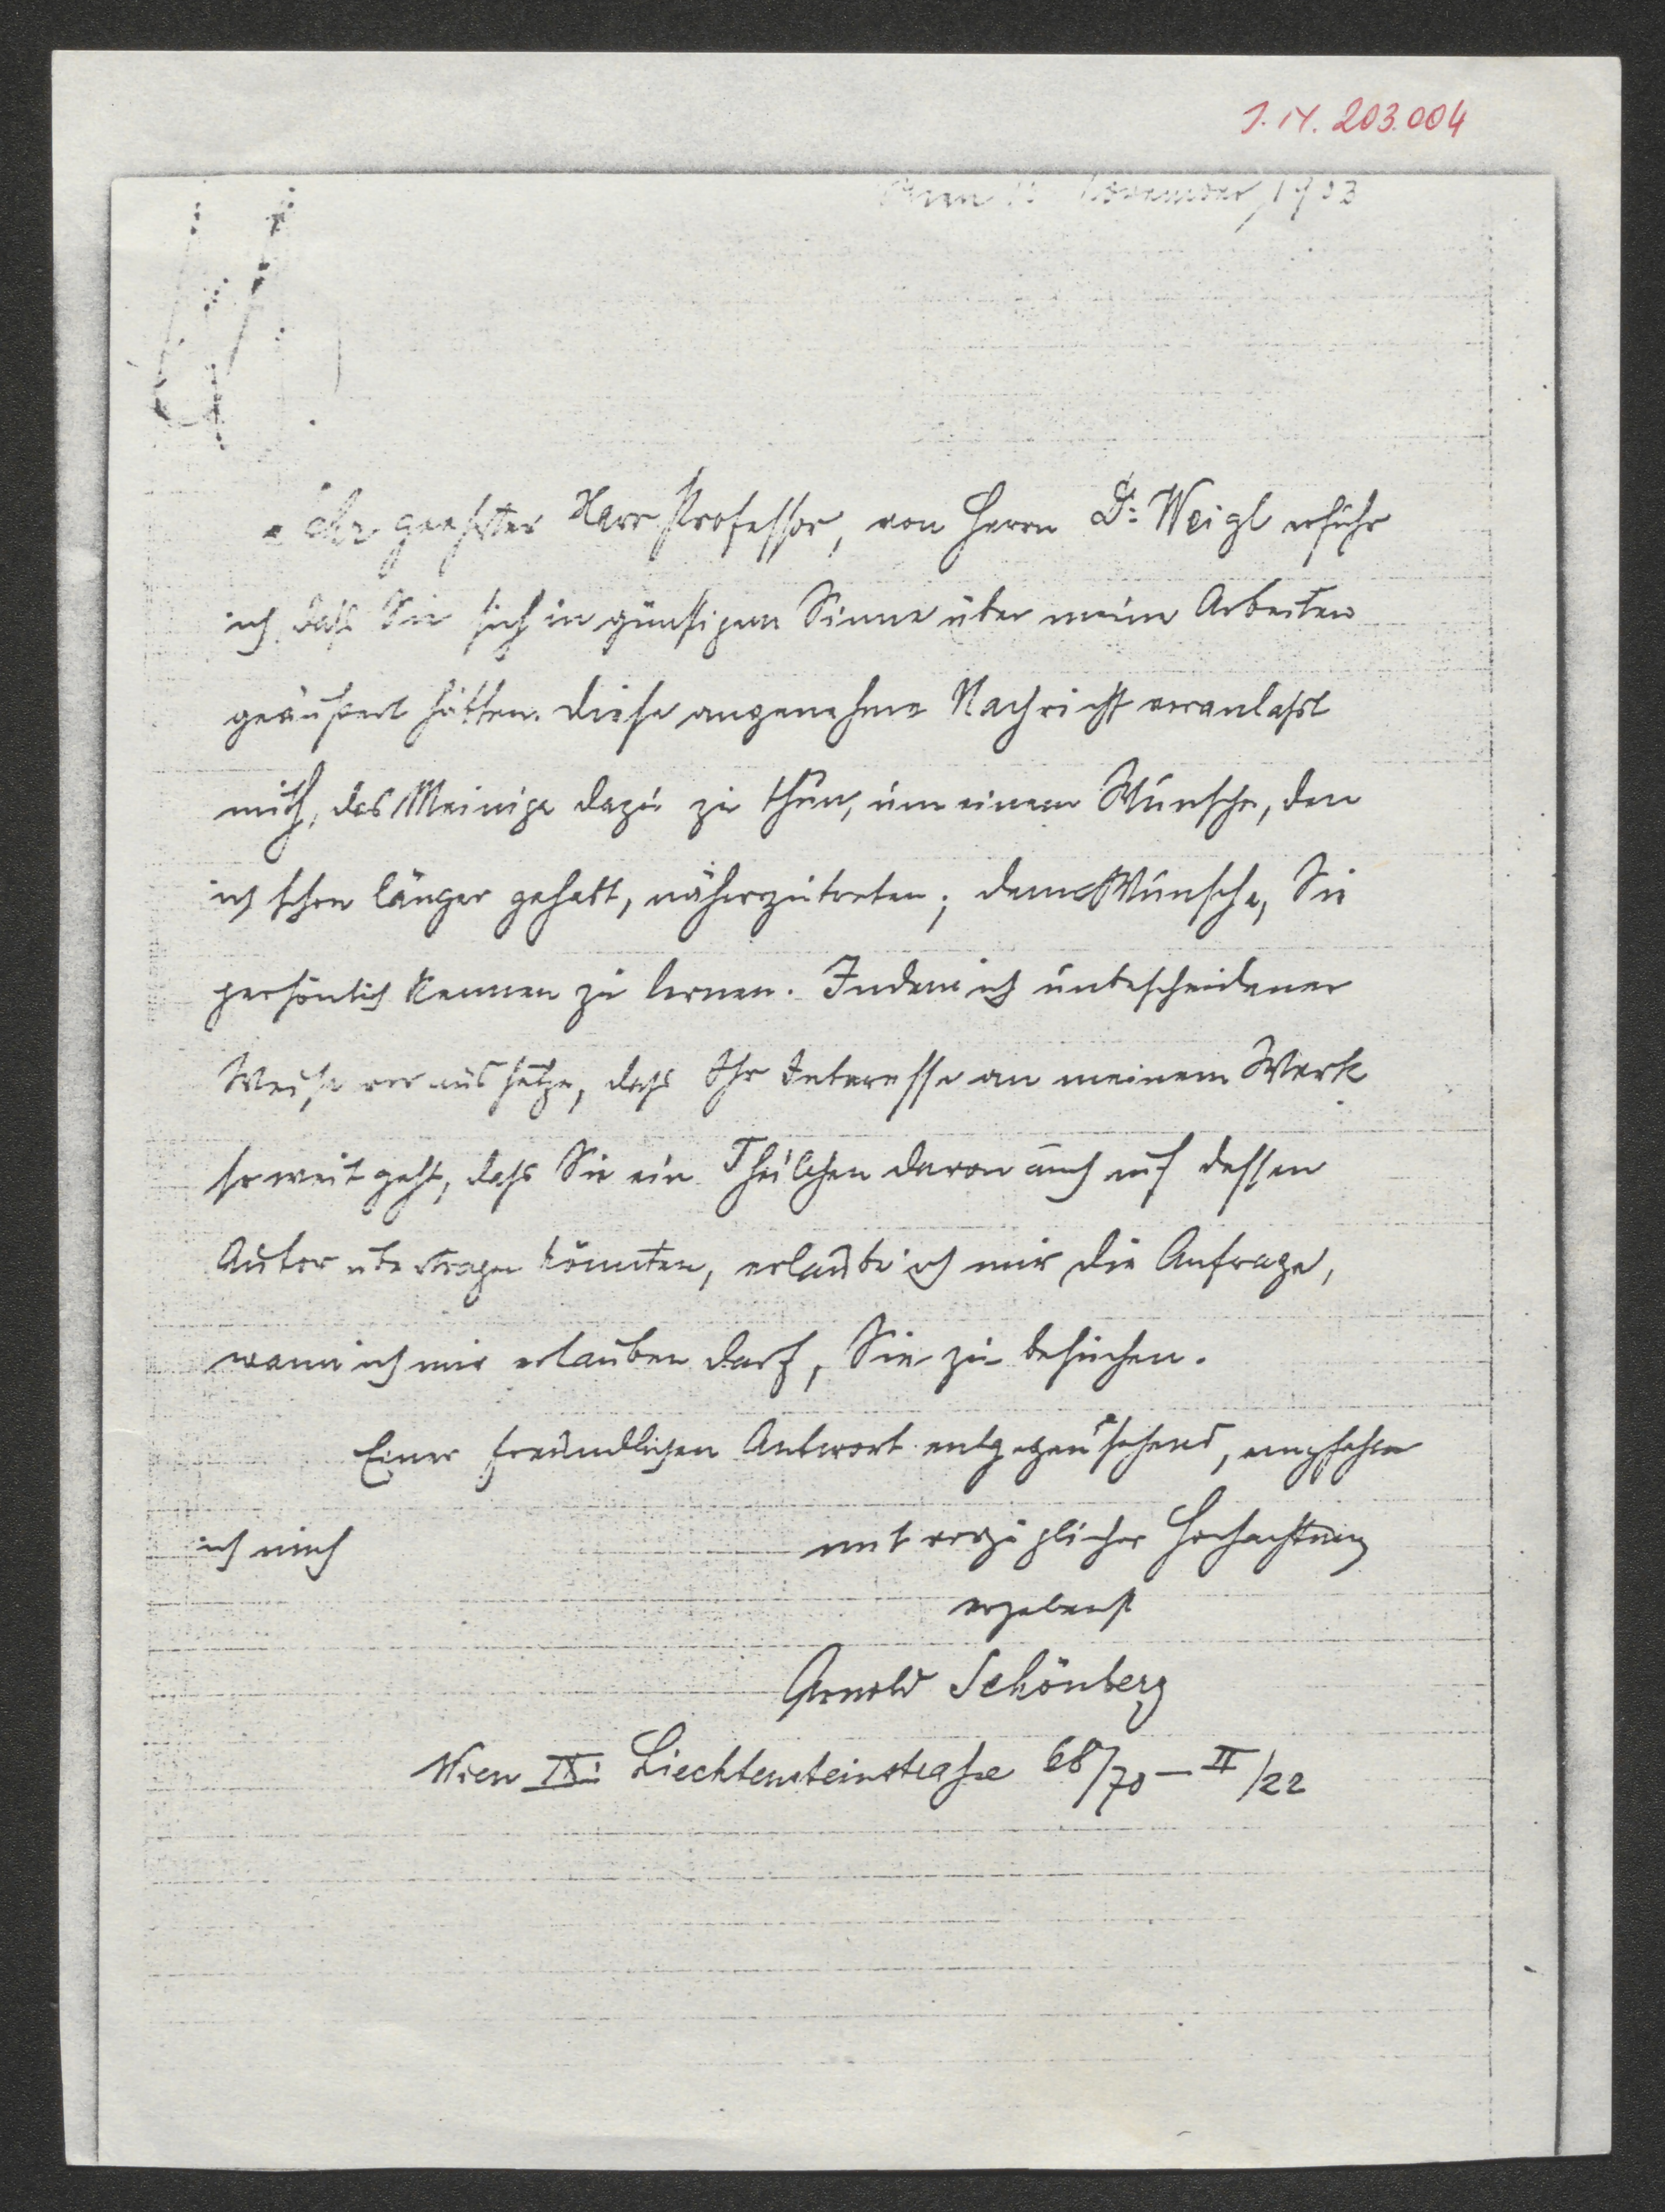 J.N. 203.004
Wien November 1903
Sehr geehrter Herr Professor, von Herrn Dr. Weigl erfuhr
ich, daß Sie sich in günstigem Sinne über meine Arbeiten
geäußert hätten. Diese angenehme Nachricht veranlaßt
mich, das Meinige dazu zu thun, um einem Wunsche, den
ich schon länger gehabt, näherzutreten; dem Wunsche, Sie
persönlich kennen zu lernen. Indem ich unbescheidener
Weise voraussetze, daß Ihr Interesse an meinem Werk
so weit geht, daß Sie ein Theilchen davon auch auf dessen
Autor übertragen könnten, erlaube ich mir die Anfrage,
wann ich mir erlauben darf, Sie zu besuchen.
Einer freundlichen Antwort entgegensehend, empfehle
ich mich mit vorzüglicher Hochachtung
ergebenst
Arnold Schönberg
Wien IX. Liechtensteinstraße 68/70 – II/22